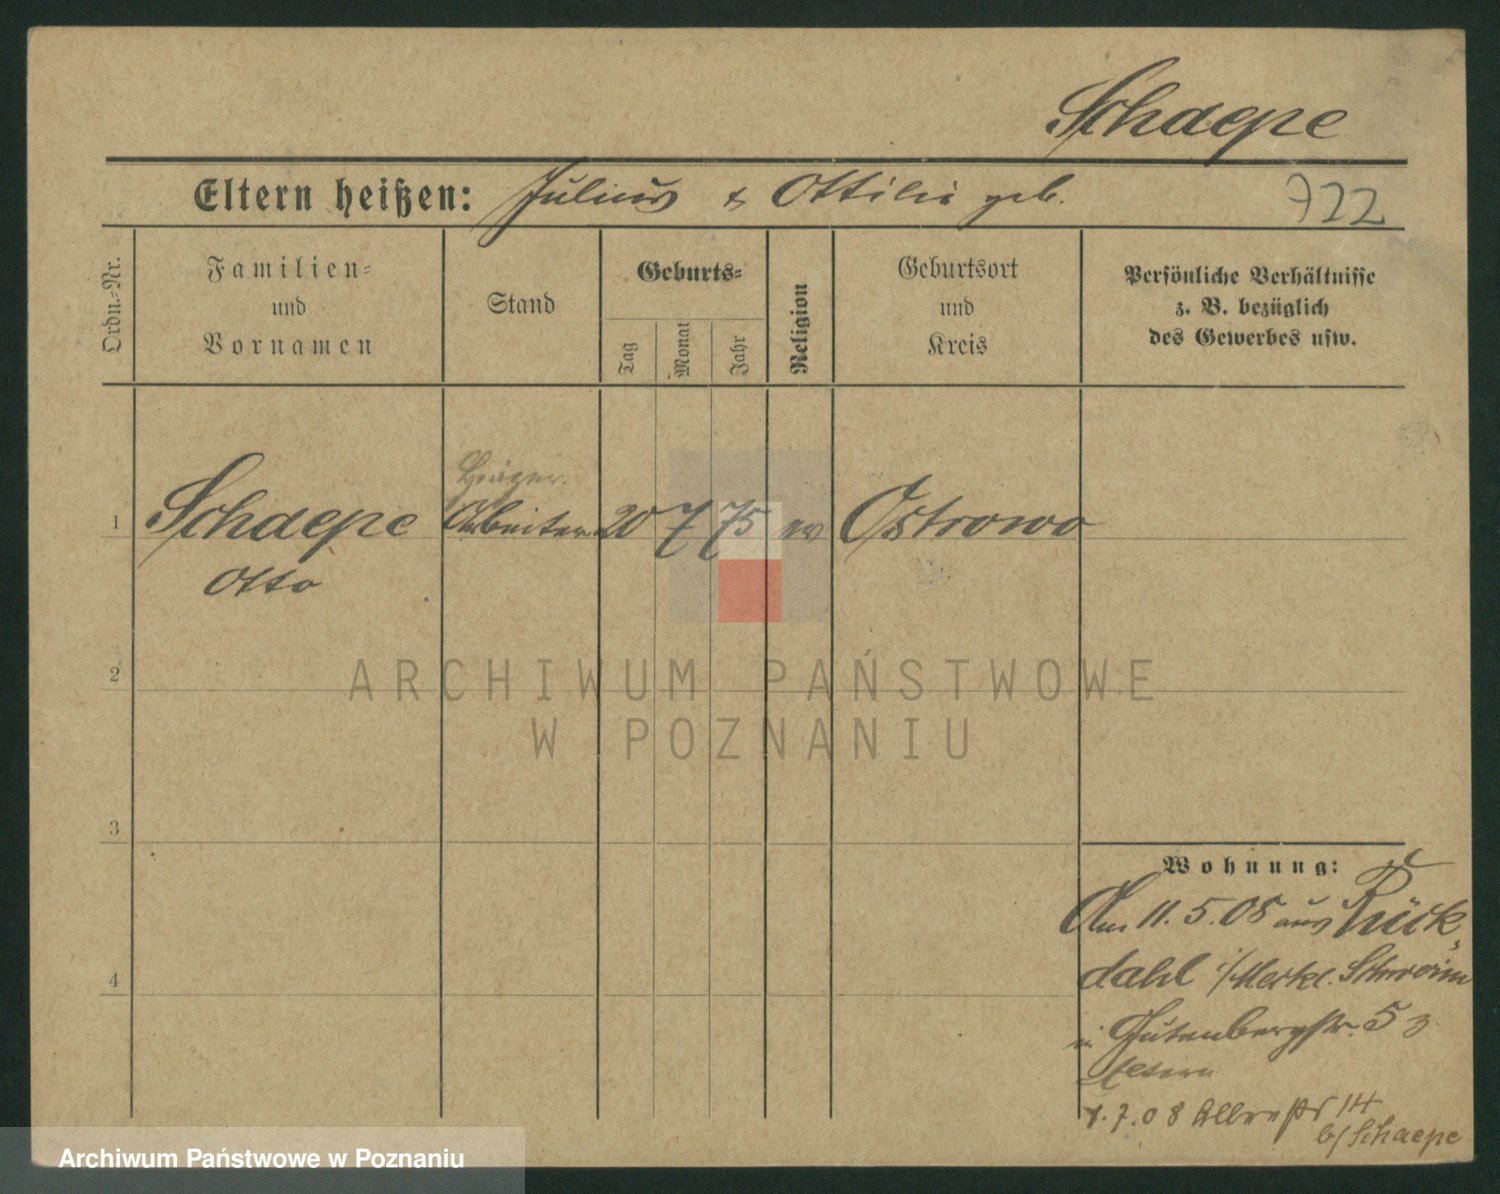 Schaepe
Eltern heißen: Julius & Ottilie geb.
722
Ordn.-Nr.
Familien-
und
Vornamen
Stand
Geburts-
Tag
Monat
Jahr
Religion
Geburtsort
und
Kreis
Persönliche Verhältnisse
z. B. bezüglich
des Gewerbes usw.
1
Schaepe
Otto
Arbeiter
20
7
75
ev
Ostrowo
2
3
4
Wohnung:
Am 11.5.08 aus Rück-
dahl i/Meckl. Schwerin
in Gutenbergstr. 5 z.
1.7.08 14
b/ Schaepe
ARCHIWUM PAŃSTWOWE
W POZNANIU
Archiwum Państwowe w Poznaniu